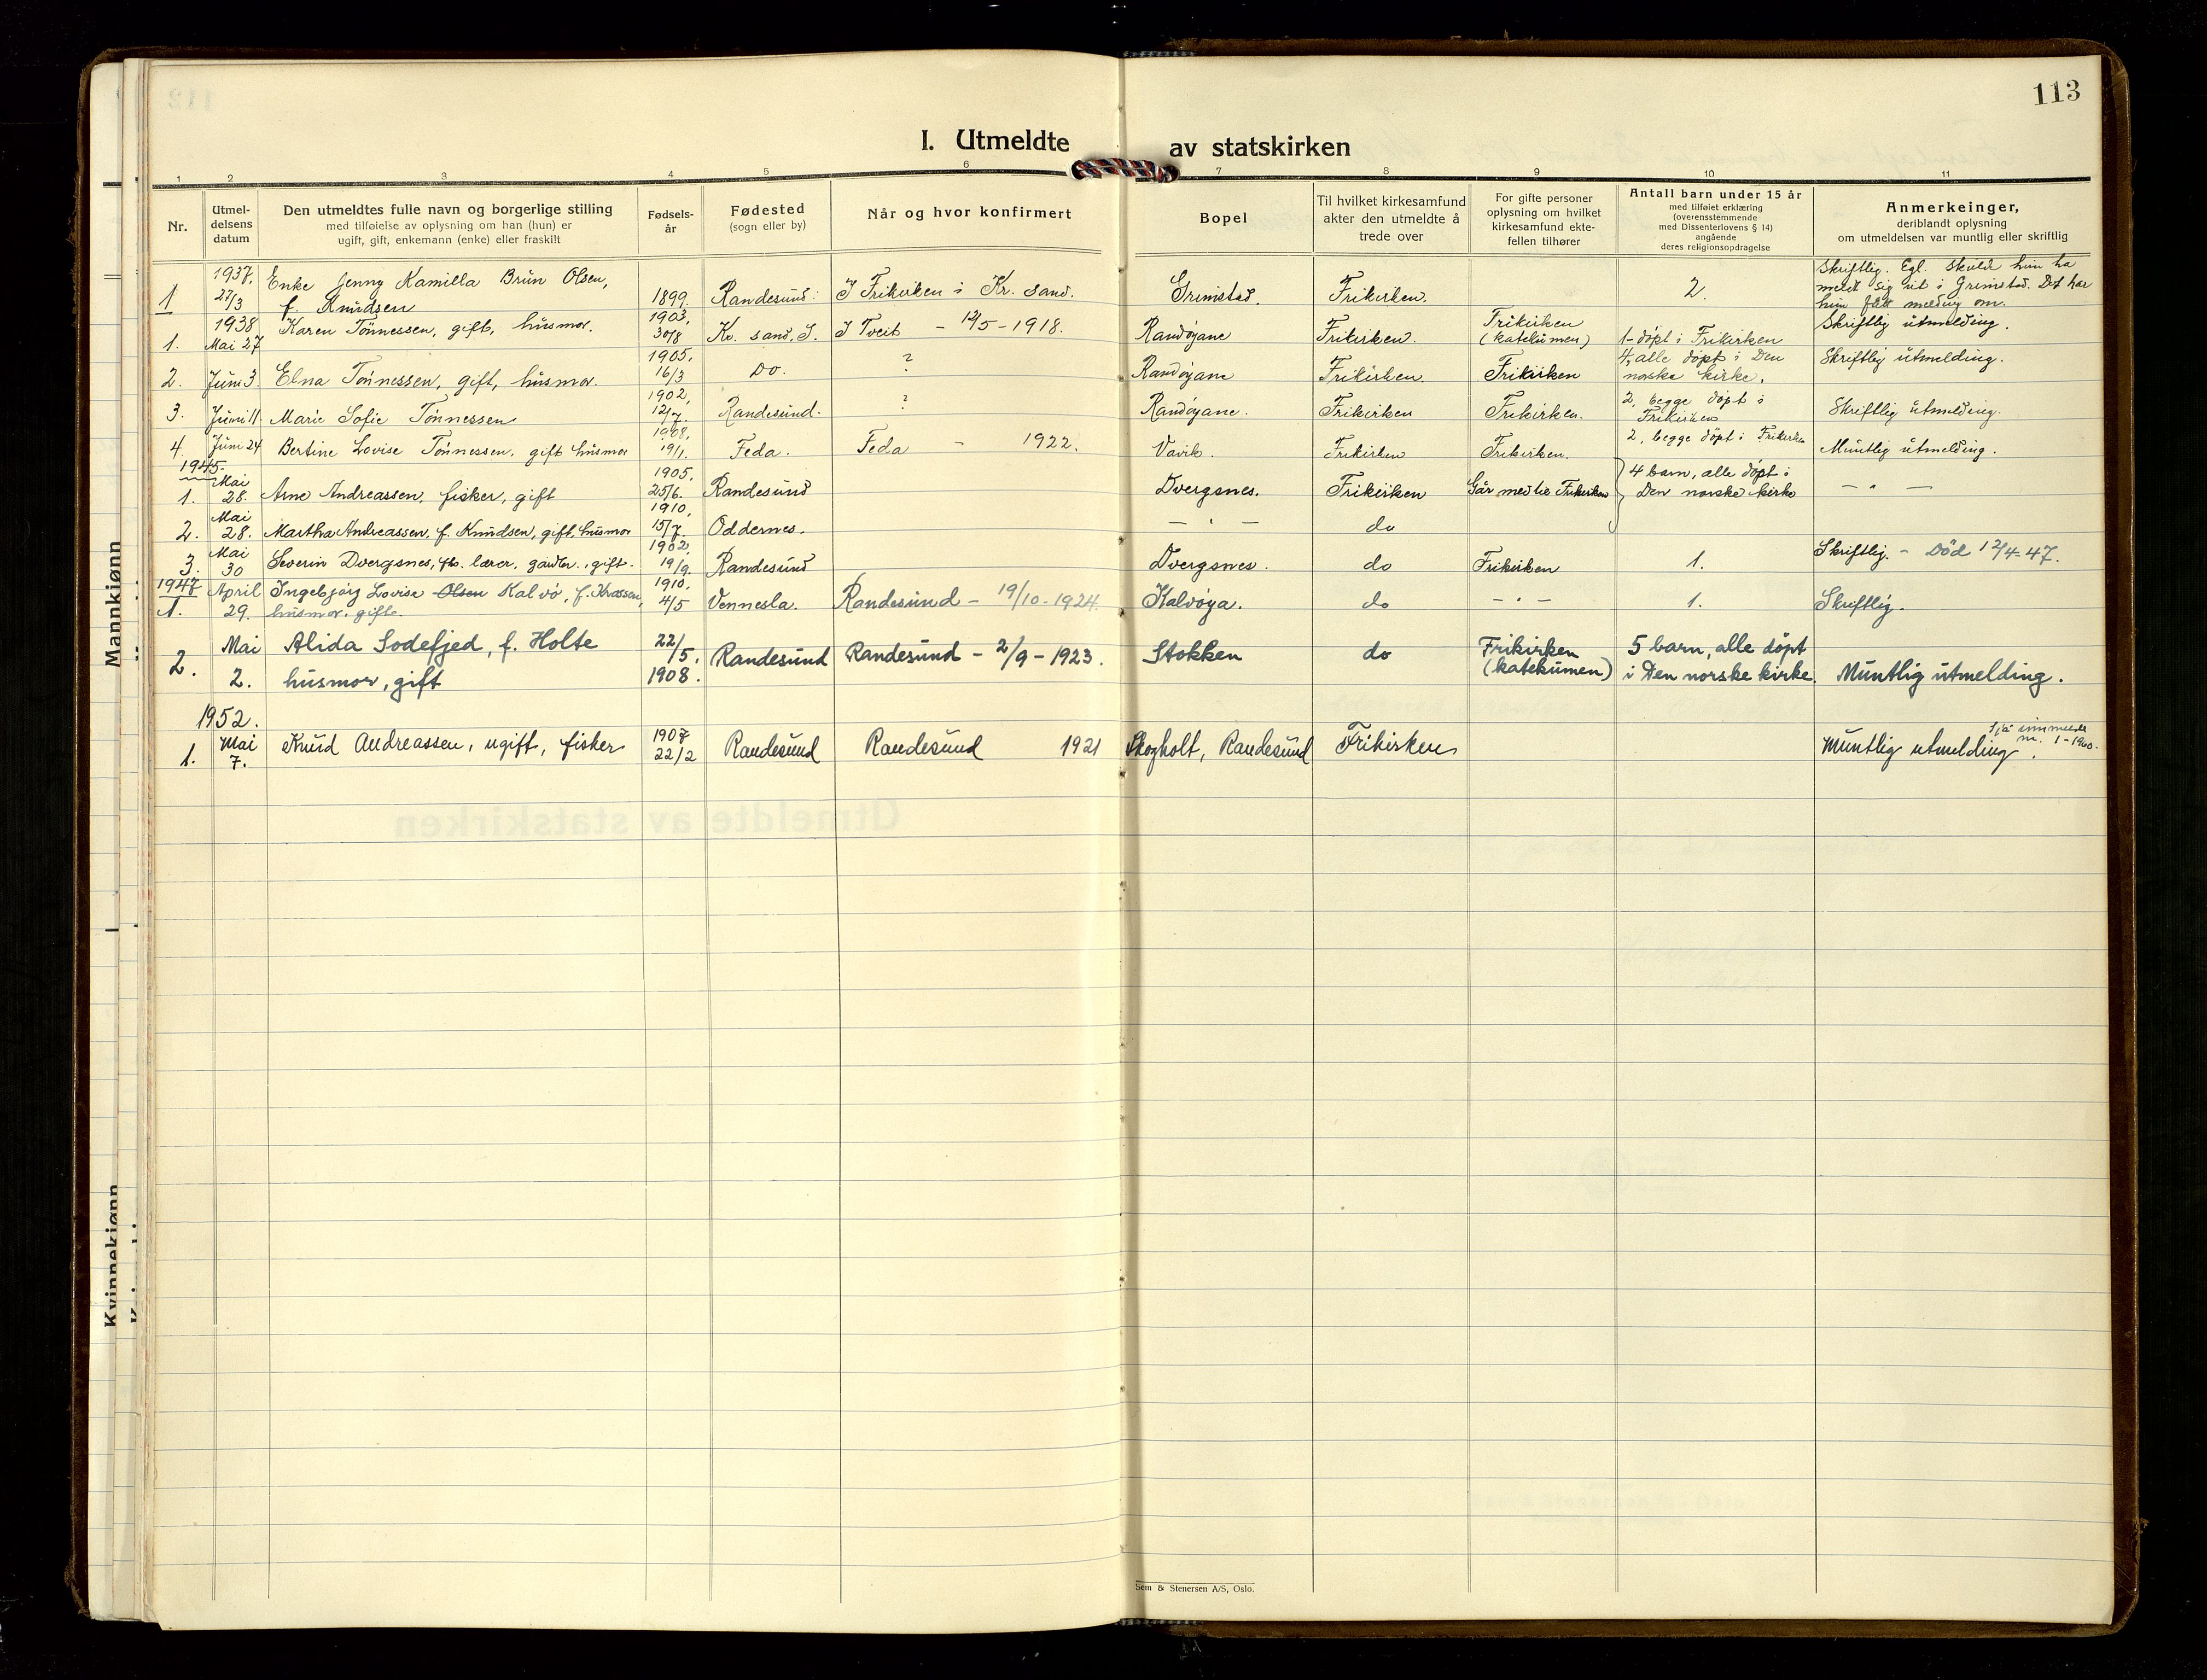 113
I. Utmeldte av statskirken
1 2 3 4 5 6 7 8 9 10 11
Nr.
Utmel-
delsens
datum
Den utmeldtes fulle navn og borgerlige stilling
med tilføielse av oplysning om han (hun) er
ugift, gift, enkemann (enke) eller fraskilt
Fødsels-
år
Fødested
(sogn eller by)
Når og hvor konfirmert
Bopel
Til hvilket kirkesamfund
akter den utmeldte å
trede over
For gifte personer
oplysning om hvilket
kirkesamfund ekte-
fellen tilhører
Antall barn under 15 år
med tilføiet erklæring
(overensstemmende
med Dissenterlovens § 14)
angående
deres religionsopdragelse
Anmerkeinger,
deriblandt oplysning
om utmeldelsen var muntlig eller skriftlig
1937.
1 27/3 Enke Jenny Kamilla Brun Olsen,
f. Knudsen 1899. Randesund. I Frikirken i Kr. sand. Grimstad. Frikirken. 2.
Skriftlig. Egl. skulde hun ha
meldt sig ut i Grimstad. Det har
hun fått melding om.
1938
1. Mai 27 Karen Tönnessen, gift, husmor. 1903. 30/8 Kr. sand, S. I Tveit - 12/5-1918. Randöyane Frikirken. Frikirken
(katekumen) 1-döpt i Frikirken Skriftlig utmelding.
2. Juni 3. Elna Tönnessen, gift, husmor. 1905. 16/3 Do. ? Randöyane Frikirken. Frikirken 4, alle döpt i Den
norske kirke. Skriftlig utmelding.
3. Juni 11. Marie Sofie Tönnessen 1902, 12/7 Randesund. ? Randöyane. Frikirken Frikirken. 2, begge döpt i
Frikirken Skriftlig utmelding.
4. Juni 24 Bertine Lovise Tönnessen, gift husmor 1908, 19/1. Feda. Feda - 1922. Vavik. Frikirken Frikirken. 2, begge döpt i Frikirken Muntlig utmelding.
1945.
1. Mai 28. Arne Andreassen, fisker, gift 1905. 25/6. Randesund Dvergsnes. Frikirken Går med til Frikirken 4 barn, alle döpt i
Den norske kirke — " —
2. Mai 28. Martha Andreassen, f. Knudsen, gift, husmor 1910, 15/7. Oddernes. — " — do
3. Mai 30 Severin Dvergsnes, fhv. lærer, gårdbr., gift. 1902, 19/9. Randesund Dvergsnes. do Frikirken 1. Skriftlig. - Död 12/4-47.
1947
1. April 29. Ingebjörg Lovise Olsen Kalvö, f. Knossen,
husmor, gift. 1910. 4/5 Vennesla. Randesund - 19/10-1924. Kalvöya. do — " — 1. Skriftlig.
2. Mai 2. Alida Sodefjed, f. Holte
husmor, gift 22/5. 1908. Randesund Randesund - 2/9-1923. Stokken do Frikirken
(katekumen) 5 barn, alle döpt
i Den norske kirke. Muntlig utmelding.
1952.
1. Mai 7. Knud Andreassen, ugift, fisker 1907 22/2 Randesund Randesund 1921 Skogholt, Randesund Frikirken Muntlig utmelding.
Sjå innmeldte
nr. 1-1960.
Mannkjønn
Kvinnekjønn
Sem & Stenersen A/S, Oslo.